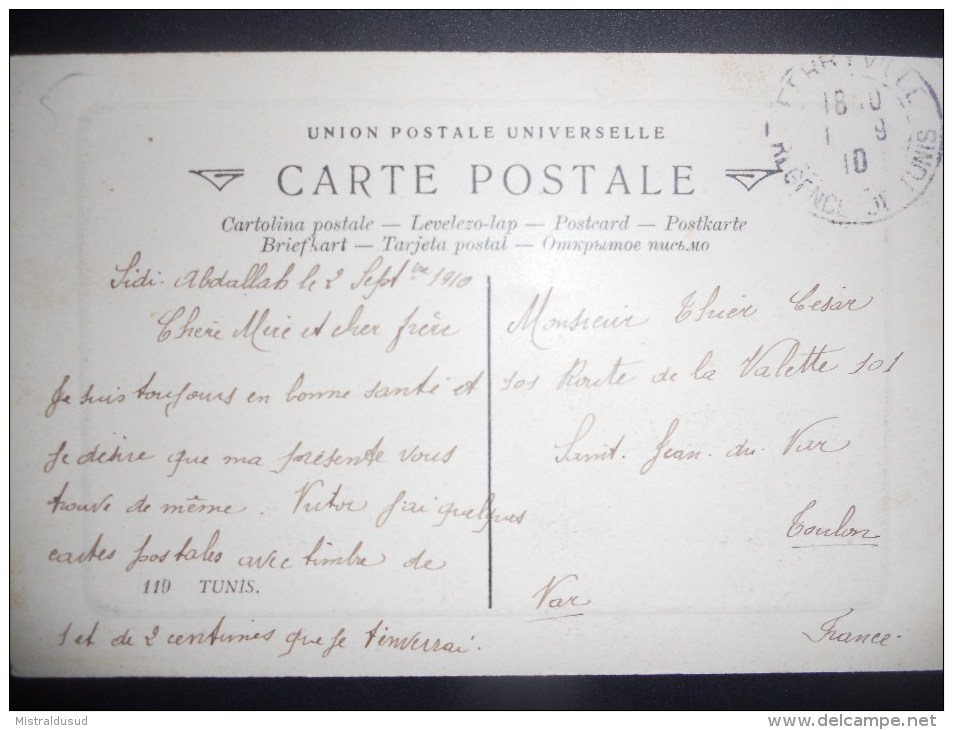 FERRYVILLE
18 10
1 9
10
REGENCE DE TUNIS
UNION POSTALE UNIVERSELLE
CARTE POSTALE
Cartolina postale — Levelezo-lap — Postcard — Postkarte
Briefkart — Tarjeta postal — Открытое письмо
Sidi-Abdallah le 2 Septbre 1910
Chère Mère et cher frère
Je suis toujours en bonne santé et
je désire que ma présente vous
trouve de même. Victor j'ai quelques
cartes postales avec timbre de
119 TUNIS.
1 et de 2 centimes que je t'enverrai.
Monsieur Thier César
101 Route de la Valette 101
Saint-Jean-du-Var
Toulon
Var
France-
Mistraldusud
delcampe.net